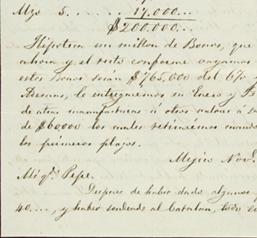 Mzo 5 .... 17.000...
$200.000...
Hipoteca un millon de Bonos, que
ahora y el resto conforme vayamos
estos Bonos serán $765,000 del 6%
Ademas, le entreguemos en Enero y
de otras manufacturas ó otros
de $60000 los cuales retiraremos cuando
los primeros plazos.
Mejico Nov.
Mi qdo. Pepe.
Despues de haber dado algunos
40...., y haber vendido al Catalan, todo